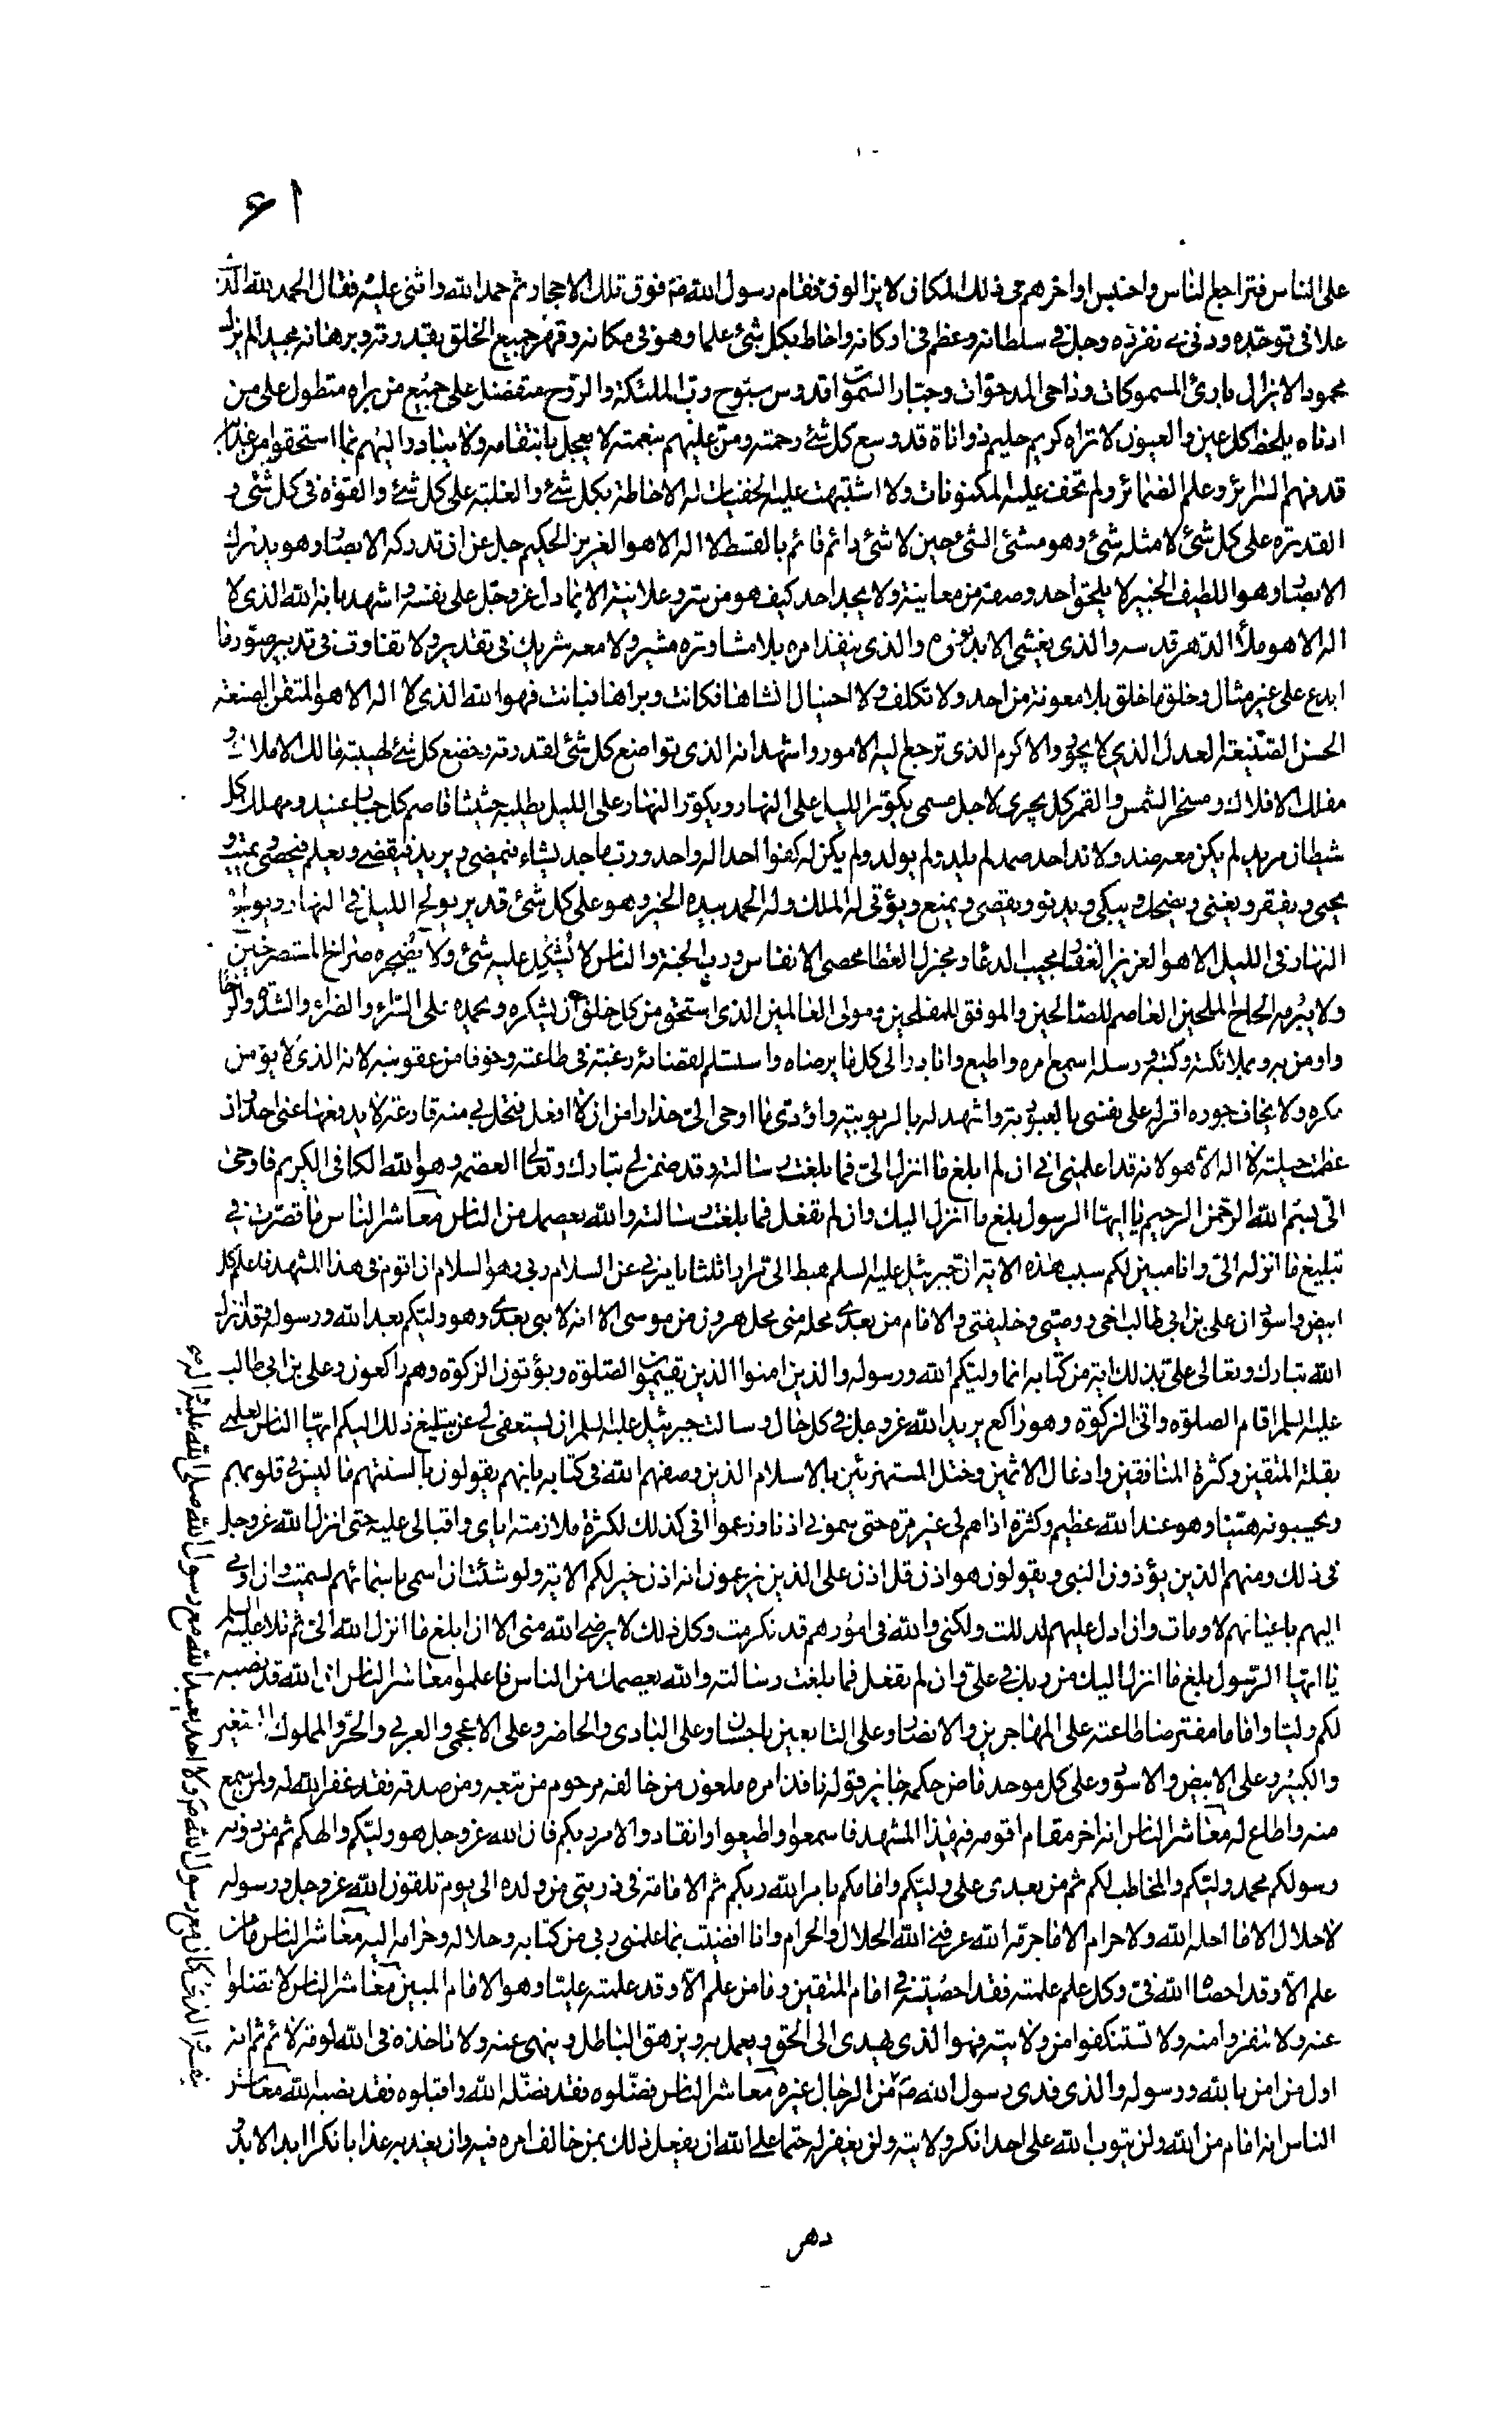 ۶۱
على الناس فتراجع الناس واحتبس اواخرهم فى ذلك المكان لا يزالون فقام رسول الله ص فوق تلك الاحجار ثم حمد الله واثنى عليه فقال الحمد لله الذى
علا فى توحده ودنى فى تفرده وجل فى سلطانه وعظم فى اركانه واحاط بكل شئ علما وهو فى مكانه وقهر جميع الخلق بقدرته وبرهانه مجيدا لم يزل
محمودا لا يزال بارئ المسموكات وداحى المدحوات وجبار السموات قدوس سبوح رب الملئكة والروح متفضل على جميع من براه متطول على من
ادناه يلحظ كل عين والعيون لا تراه كريم حليم ذو اناة قد وسع كل شئ رحمته ومن عليهم بنعمته لا يعجل بانتقامه ولا يبادر اليهم بما استحقوا من عذابه
قد فهم السرائر وعلم الضمائر ولم تخف عليه المكنونات ولا اشتبهت عليه الخفيات له الاحاطة بكل شئ والغلبة على كل شئ والقوة فى كل شئ و
القدرة على كل شئ لا مثله شئ وهو منشئ الشئ حين لا شئ دائم قائم بالقسط لا اله الا هو العزيز الحكيم جل عن ان تدركه الابصار وهو يدرك
الابصار وهو اللطيف الخبير لا يلحق احد وصفه من معاينة ولا يجد احد كيف هو من سر وعلانية الا بما دل عز وجل على نفسه واشهد بانه الله الذى لا
اله الا هو ملأ الدهر قدسه والذى يغشى الابد نوره والذى ينفذ امره بلا مشاورة مشير ولا معه شريك فى تقديره ولا تفاوت فى تدبير صور ما
ابدع على غير مثال وخلق ما خلق بلا معونة من احد ولا تكلف ولا احتيال انشاها فكانت وبراها فبانت فهو الله الذى لا اله الا هو المتقن الصنعة
الحسن الصنيعة العدل الذى لا يجور والاكرم الذى ترجع اليه الامور واشهد انه الذى تواضع كل شئ لقدرته وخضع كل شئ لهيبته مالك الاملاك و
مفلك الافلاك ومسخر الشمس والقمر كل يجرى لاجل مسمى يكور الليل على النهار ويكور النهار على الليل يطلبه حثيثا قاصم كل جبار عنيد ومهلك كل
شيطان مريد لم يكن معه ضد ولا ند احد صمد لم يلد ولم يولد ولم يكن له كفوا احد اله واحد ورب ماجد يشاء فيمضى ويريد فيقضى ويعلم فيحصى ويميت و
يحيى ويفقر ويغنى ويضحك ويبكى ويدنو ويقصى ويمنع ويؤتى له الملك وله الحمد بيده الخير وهو على كل شئ قدير يولج الليل فى النهار ويولج
النهار فى الليل الا هو العزيز الغفار مجيب الدعاء ومجزل العطا محصى الانفاس ورب الجنة والناس لا يشكل عليه شئ ولا يضجره صراخ المستصرخين
ولا يبرمه الحاح الملحين العاصم للصالحين والموفق للمفلحين ومولى العالمين الذى استحق من كل خلق ان يشكره ويحمده على السراء والضراء والشدة والرخا
واومن به وبملائكته وكتبه ورسله اسمع امره واطيع وابادر الى كل ما يرضاه واستسلم لقضائه رغبة فى طاعته وخوفا من عقوبته لانه الذى لا يؤمن
مكره ولا يخاف جوره اقر له على نفسى بالعبودية واشهد له بالربوبية واؤدى ما اوحى الى حذرا من ان لا افعل فتحل بى منه قارعة لا يدفعها عنى احد وان
عظمت حيلته لا اله الا هو لانه قد اعلمنى انى ان لم ابلغ ما انزل الى فما بلغت رسالته وقد ضمن لى تبارك وتعالى العصمة وهو الله الكافى الكريم فاوحى
الى بسم الله الرحمن الرحيم يا ايها الرسول بلغ ما انزل اليك وان لم تفعل فما بلغت رسالته والله يعصمك من الناس معاشر الناس ما قصرت فى
تبليغ ما انزله الى وانا مبين لكم سبب هذه الاية ان جبرئيل عليه السلم هبط الى مرارا ثلثا يامرنى عن السلام ربى وهو السلام ان اقوم فى هذا المشهد فاعلم كل
ابيض واسود ان على بن ابى طالب اخى ووصيى وخليفتى والامام من بعدى محله منى محل هرون من موسى الا انه لا نبى بعدى وهو وليكم بعد الله ورسوله وقد انزل
الله تبارك وتعالى على بذلك اية من كتابه انما وليكم الله ورسوله والذين امنوا الذين يقيمون الصلوة ويؤتون الزكوة وهم راكعون وعلى بن ابى طالب
عليه السلم اقام الصلوة واتى الزكوة وهو راكع يريد الله عز وجل فى كل حال وسالت جبرئيل عليه السلم ان يستعفى لى عن تبليغ ذلك اليكم ايها الناس لعلمى
بقلة المتقين وكثرة المنافقين وادغال الاثمين وختل المستهزئين بالاسلام الذين وصفهم الله فى كتابه بانهم يقولون بالسنتهم ما ليس فى قلوبهم
ويحسبونه هينا وهو عند الله عظيم وكثرة اذاهم لى غير مرة حتى سمونى اذنا وزعموا انى كذلك لكثرة ملازمته اياى واقبالى عليه حتى انزل الله عز وجل
فى ذلك ومنهم الذين يؤذون النبى ويقولون هو اذن قل اذن على الذين يزعمون انه اذن خير لكم الاية ولو شئت ان اسمى باسمائهم لسميت وان اومى
اليهم باعيانهم لاومات وان ادل عليهم لدللت ولكنى والله فى امورهم قد تكرمت وكل ذلك لا يرضى الله منى الا ان ابلغ ما انزل الله الى ثم تلا عليه السلم
يا ايها الرسول بلغ ما انزل اليك من ربك فى على وان لم تفعل فما بلغت رسالته والله يعصمك من الناس فاعلموا معاشر الناس ان الله قد نصبه
لكم وليا واماما مفترضا طاعته على المهاجرين والانصار وعلى التابعين باحسان وعلى البادى والحاضر وعلى الاعجمى والعربى والحر والمملوك والصغير
والكبير وعلى الابيض والاسود وعلى كل موحد ماض حكمه جايز قوله نافذ امره ملعون من خالفه مرحوم من تبعه ومن صدقه فقد غفر الله له ولمن سمع
منه واطاع له معاشر الناس انه اخر مقام اقومه فى هذا المشهد فاسمعوا واطيعوا وانقادوا لامر ربكم فان الله عز وجل هو وليكم والهكم ثم من دونه
رسولكم محمد وليكم والمخاطب لكم ثم من بعدى على وليكم وامامكم بامر الله ربكم ثم الامامة فى ذريتى من ولده الى يوم تلقون الله عز وجل ورسوله
لا حلال الا ما احله الله ولا حرام الا ما حرمه الله عرفنى الله الحلال والحرام وانا افضيت بما علمنى ربى من كتابه وحلاله وحرامه اليه معاشر الناس ما من
علم الا وقد احصاه الله فى وكل علم علمته فقد احصيته فى امام المتقين وما من علم الا وقد علمته عليا وهو الامام المبين معاشر الناس لا تضلوا
عنه ولا تنفروا منه ولا تستنكفوا من ولايته فهو الذى يهدى الى الحق ويعمل به ويزهق الباطل وينهى عنه ولا تاخذه فى الله لومة لائم ثم انه
اول من امن بالله ورسوله والذى فدى رسول الله ص من الرجال غيره معاشر الناس فضلوه فقد فضله الله واقبلوه فقد نصبه الله معاشر
الناس انه امام من الله ولن يتوب الله على احد انكر ولايته ولن يغفر له حتما على الله ان يفعل ذلك بمن خالف امره فيه وان يعذبه عذابا نكرا ابد الاباد
دهر
بنفسه والذى كان مع رسول الله ص ولا احد يعبد الله مع رسول الله صلى الله عليه واله من